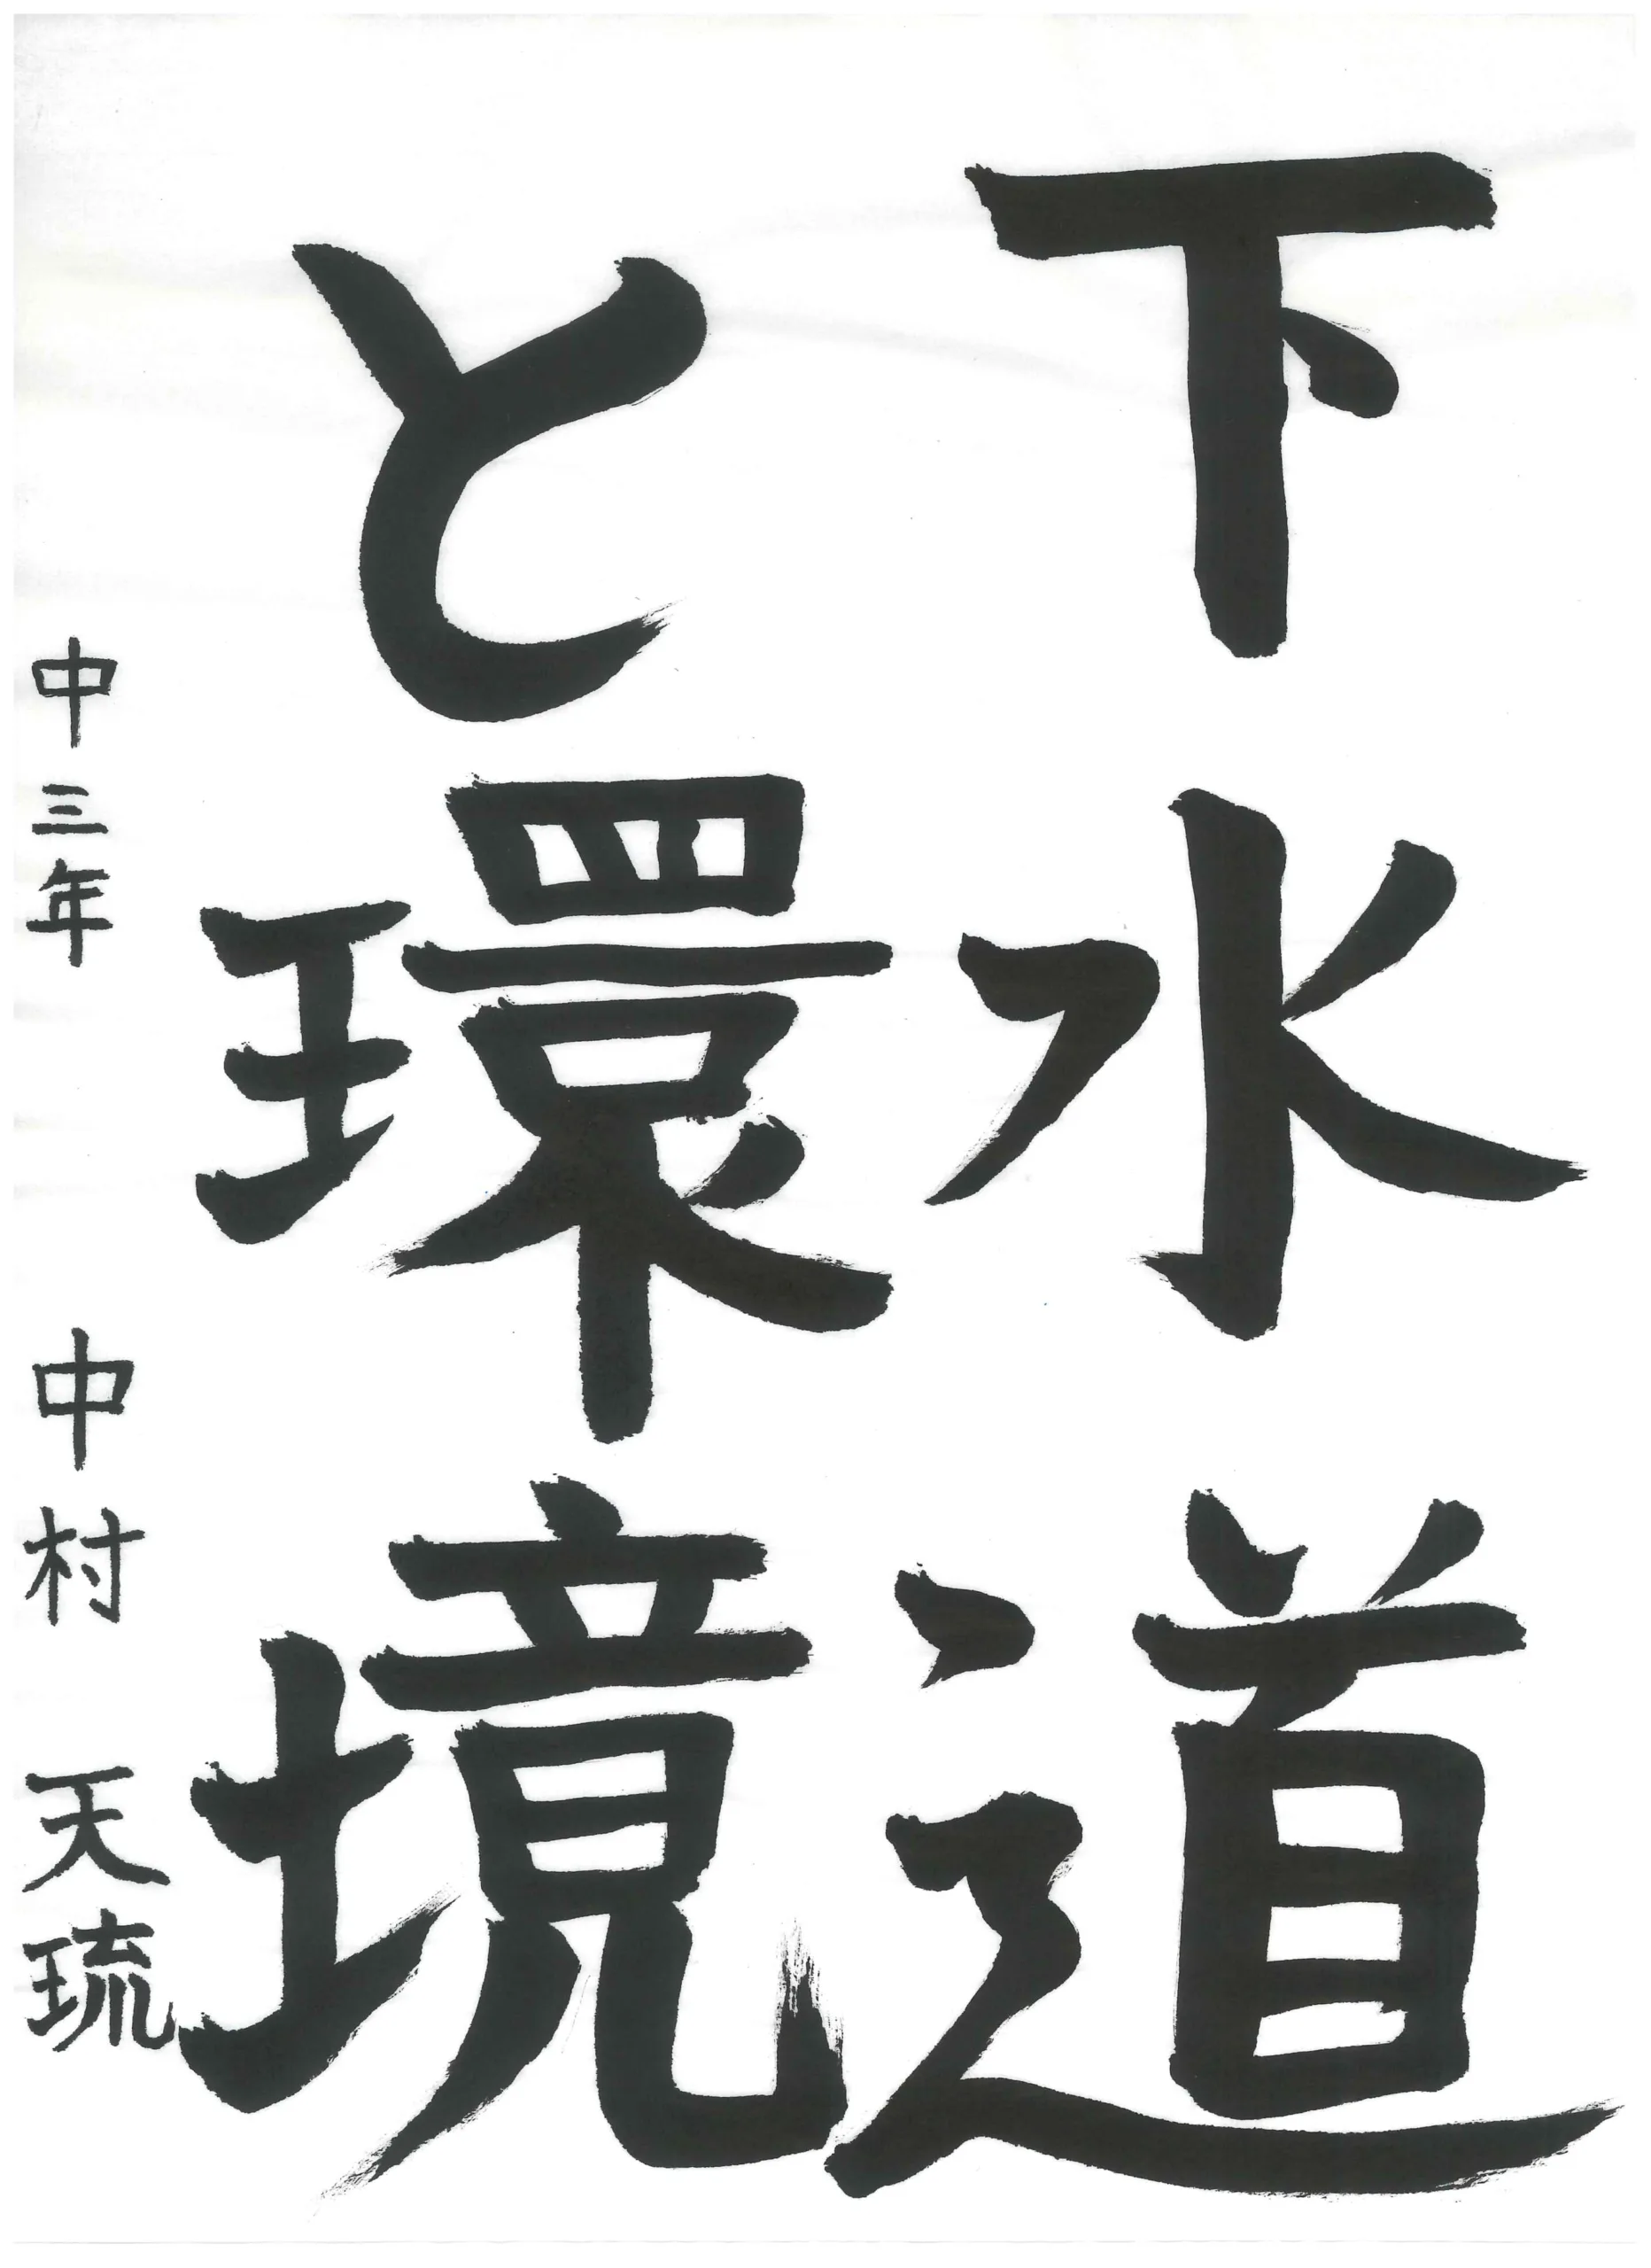 下水道
と環境
中三年 中村 天琉